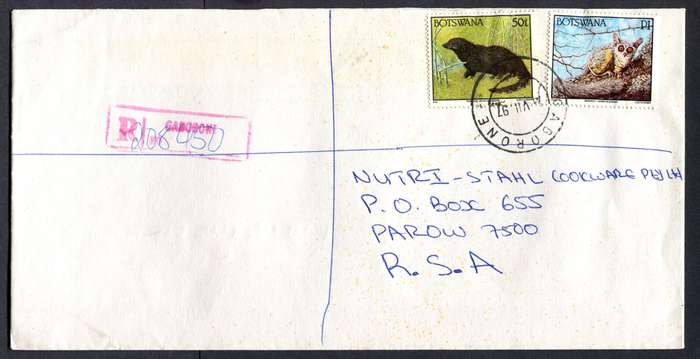 BOTSWANA 50t
BOTSWANA P1
GABORONE
VII.97
R GABORONE
NUTRI-STAHL COOKWARE PTY LTD
P.O. BOX 655
PAROW 7500
R.S.A